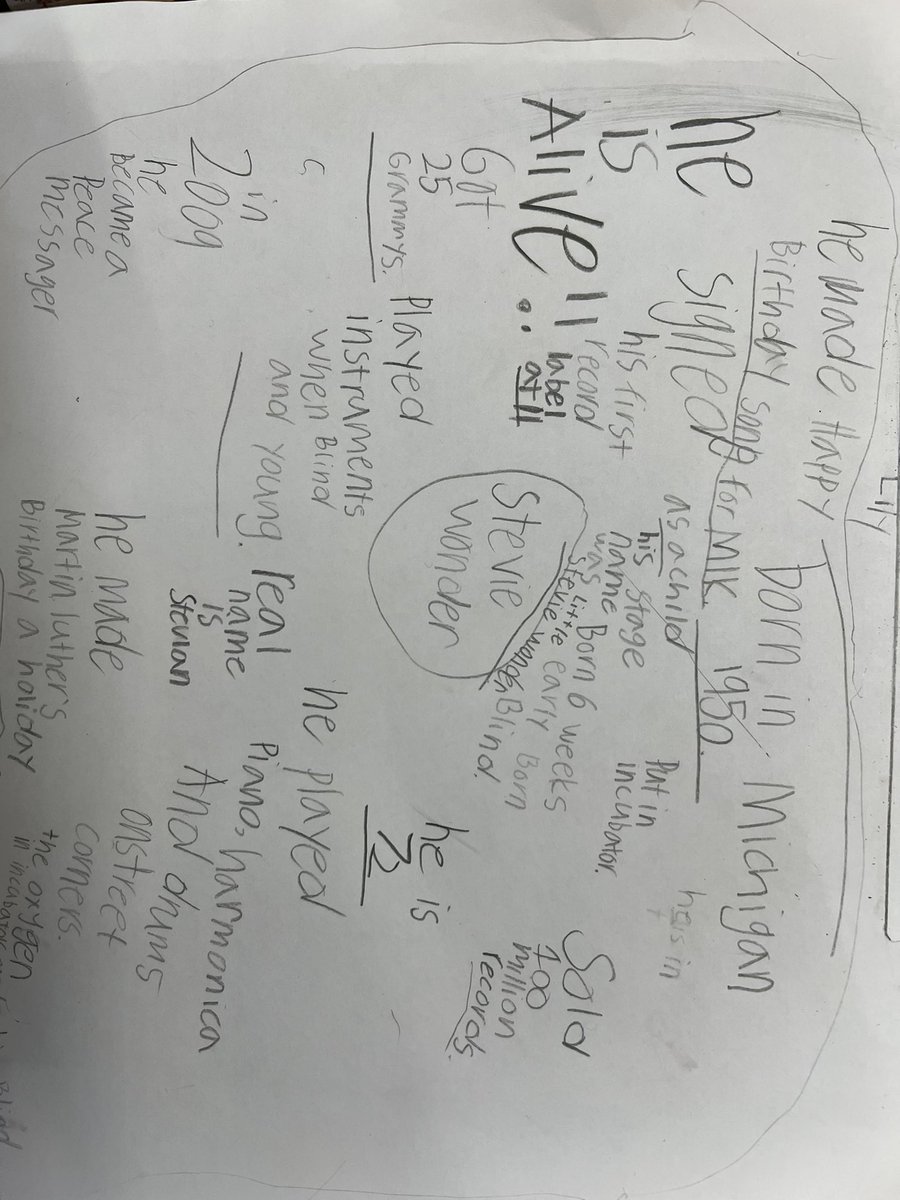 Lily
he made Happy
Birthday song for MLK.
born in Michigan
1950.
he
is
Alive!!
signed
his first
record
label
at 11
as a child
his stage
name
was
Little
Stevie wonder
Put in
incubator.
he is in
Born 6 weeks
early Born
Blind.
Sold
100
million
records.
Got
25
Grammys.
Stevie
wonder
he is
Played
instruments
when Blind
and young.
he played
Piano, harmonica
And drums
on street
corners.
real
name
is
Stevian
in
2009
he
became a
Peace
messager
he made
Martin luther's
Birthday a holiday
the oxygen
in incubator
Blind